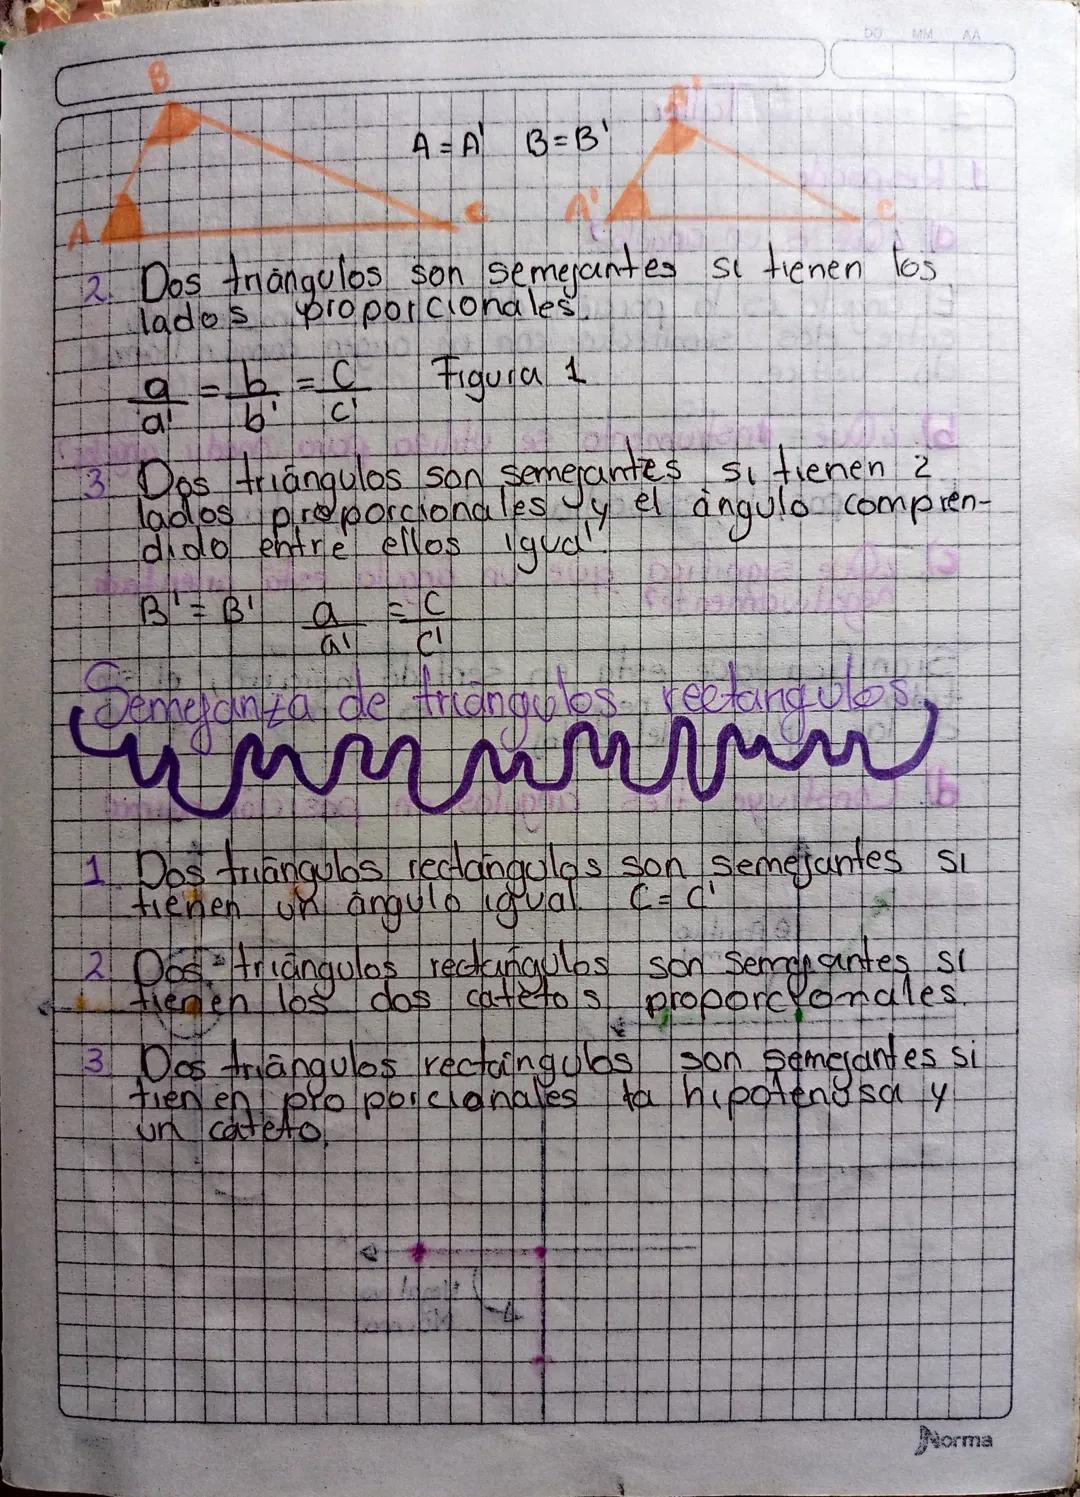 DD MM AA
B
B'
A = A' B = B'
A
C
A'
C
2. Dos triángulos son semejantes si tienen los
lados proporcionales.
a/a' = b/b' = c/c' Figura 1
3 Dos triángulos son semejantes si tienen 2
lados proporcionales y el ángulo compren-
dido entre ellos igual.
B' = B' a/a' = c/c'
Semejanza de triángulos rectangulos.
1. Dos triángulos rectángulos son semejantes si
tienen un ángulo igual. C = C'
2. Dos triángulos rectángulos son semejantes si
tienen los dos catetos proporcionales.
3 Dos triángulos rectángulos son semejantes si
tienen proporcionales la hipotenusa y
un cateto.
Norma